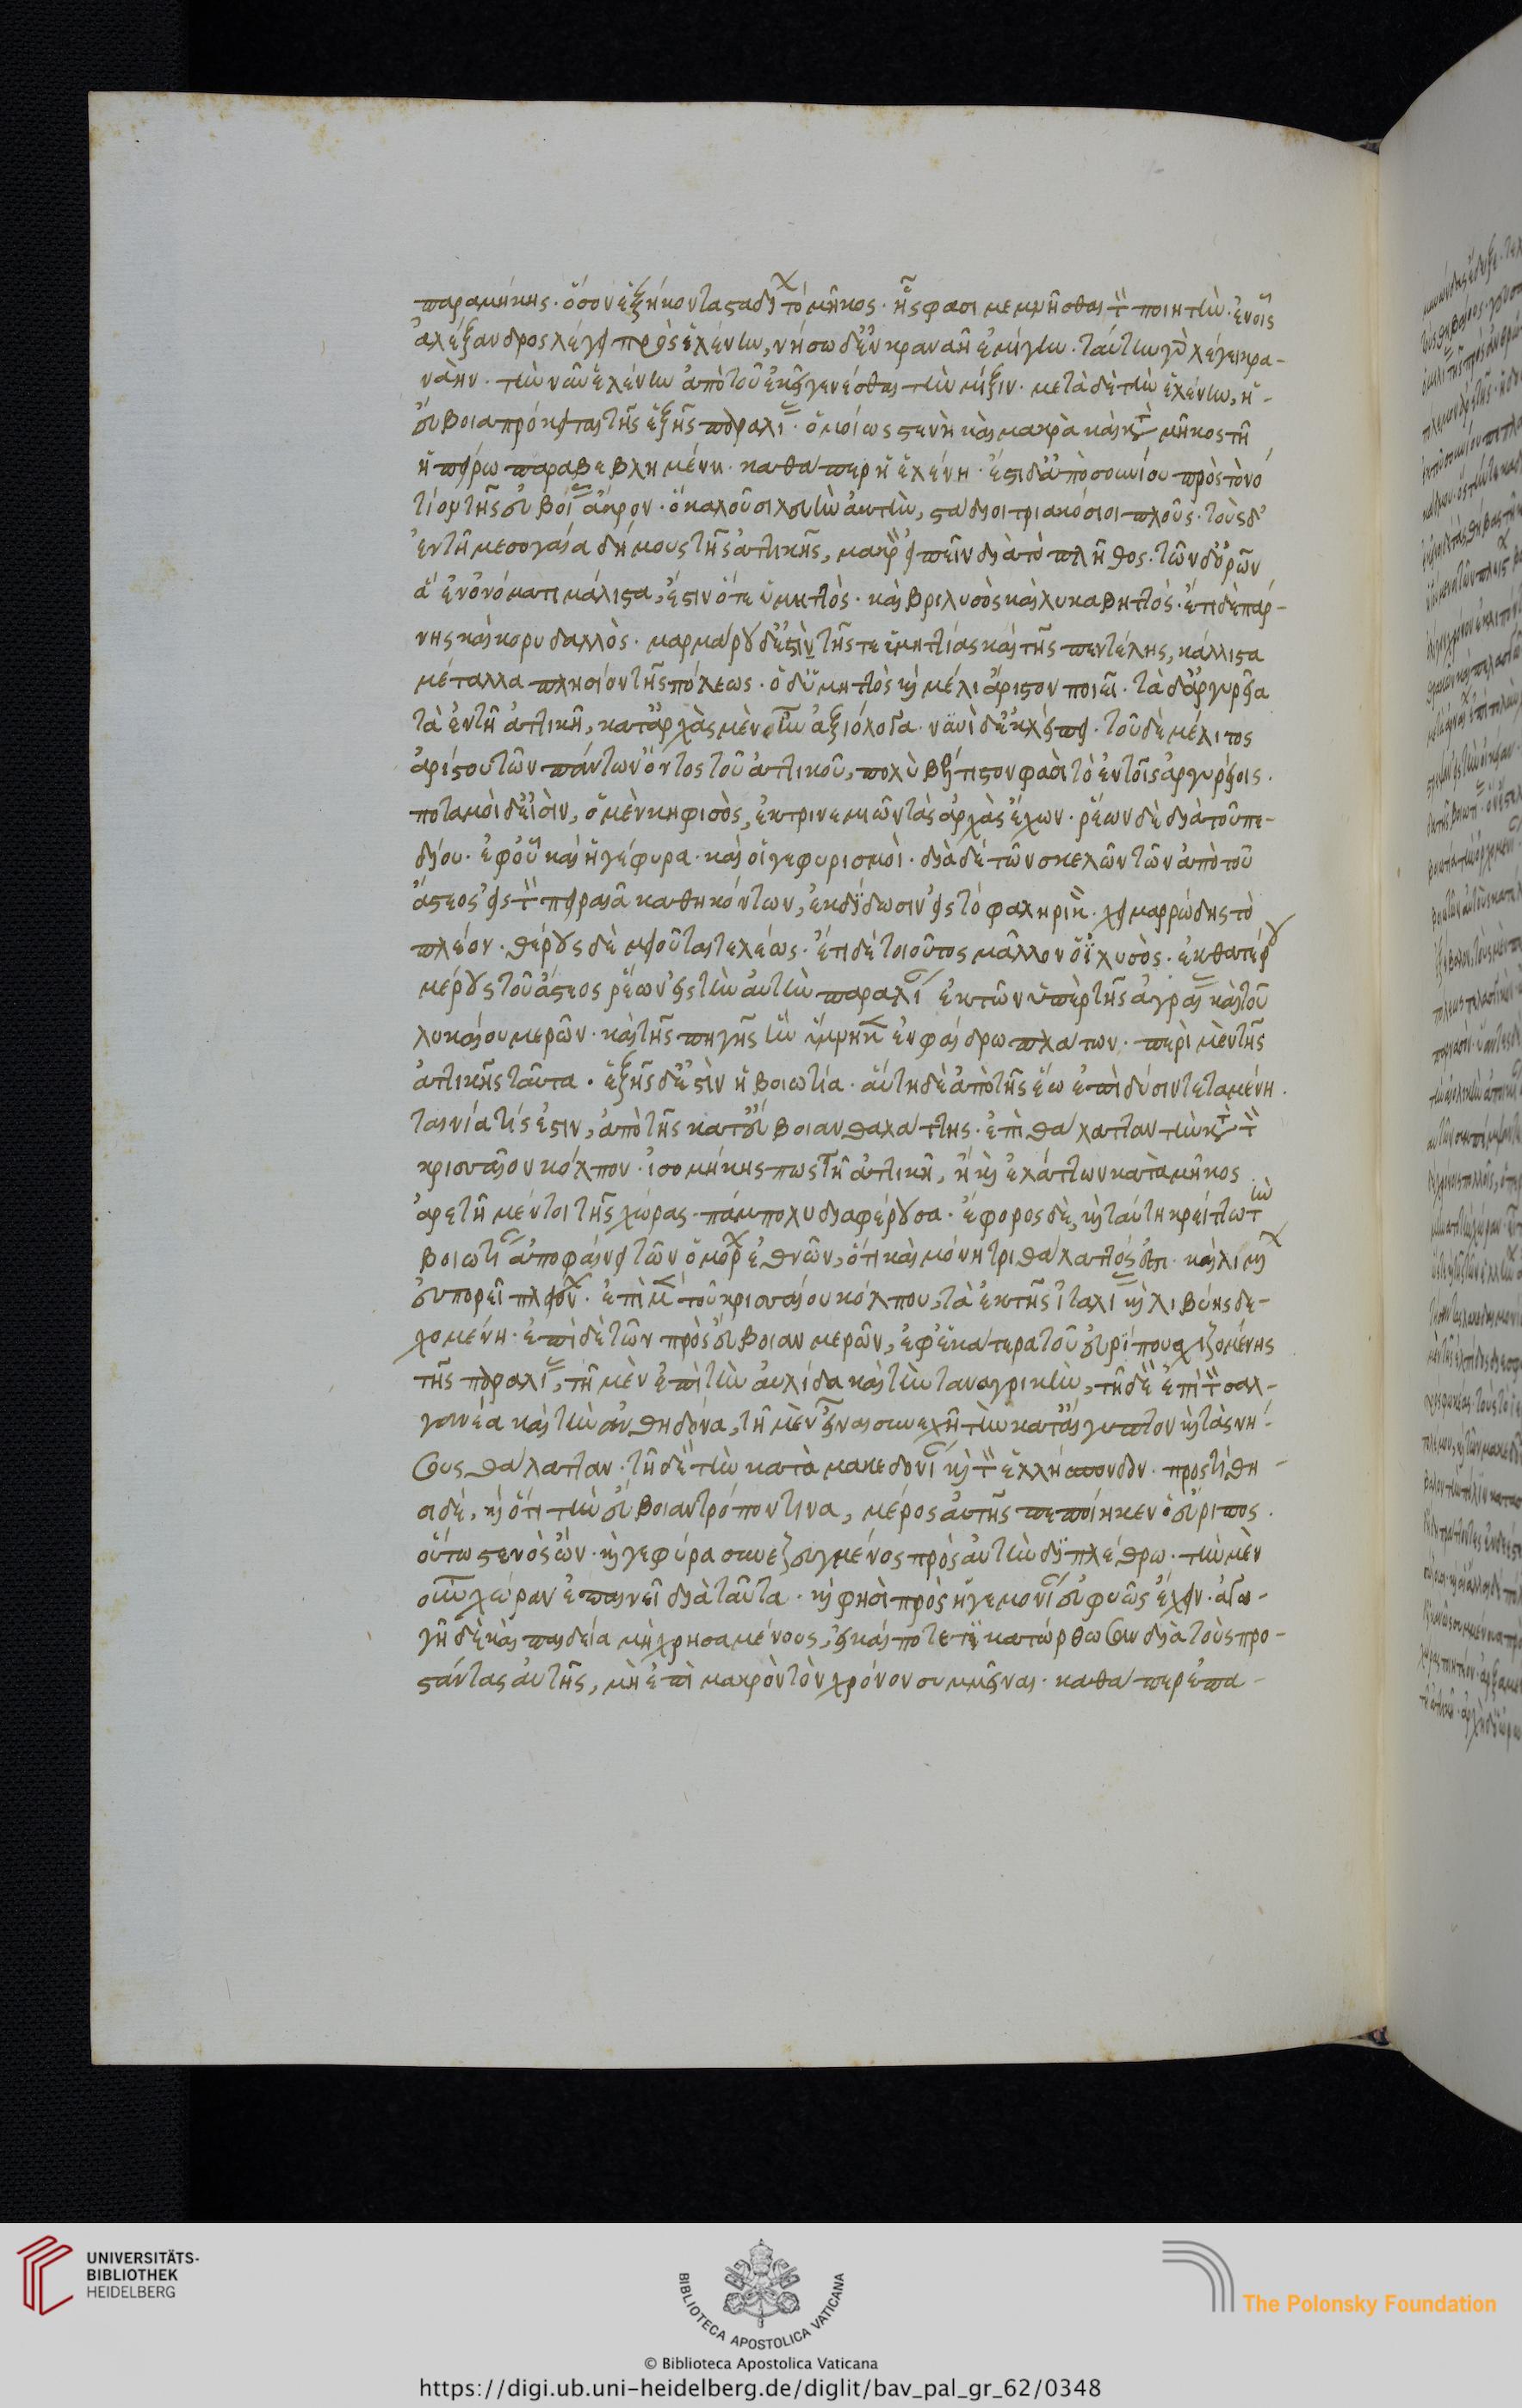 παραμήκης. ὅσον ἑξήκοντα σταδίων τὸ μῆκος. ἧς φασι μεμνῆσθαι τὸν ποιητὴν. ἐν οἷς
ἀλέξανδρος λέγει πρὸς ἑλένην, νήσῳ δ' ἐν κραναῇ ἐμίγην. ταύτην γὰρ λέγει κρα-
νάην. τὴν νῦν ἑλένην ἀπὸ τοῦ ἐκεῖ γενέσθαι τὴν μίξιν. μετὰ δὲ τὴν ἑλένην, ἡ
εὔβοια πρόκειται τῆς ἑξῆς παραλίας. ὁμοίως στενὴ καὶ μακρὰ καὶ κατὰ μῆκος τῇ
ἠπείρω παραβεβλημένη. καθάπερ ἡ ἑλένη. ἔστι δ' ἀπὸ σουνίου πρὸς τὸ νό-
τιον τῆς εὐβοίας ἄκρον. ὃ καλοῦσι λευκὴν ἀκτὴν, στάδιοι τριακόσιοι πλοῦς. τοὺς δ'
ἐν τῇ μεσογαία δήμους τῆς ἀττικῆς, μακρὸν εἰπεῖν διὰ τὸ πλῆθος. τῶν δ' ὀρῶν
ἃ ἐν ὀνόματι μάλιστα, ἔστιν ὅτε ὑμηττὸς. καὶ βριλυσὸς καὶ λυκαβηττός. ἔτι δὲ πάρ-
νης καὶ κορυδαλλὸς. μαρμάρου δ' ἐστὶν τῆς τε ὑμηττίας καὶ τῆς πεντέλης, κάλλιστα
μέταλλα πλησίον τῆς πόλεως. ὁ δ' ὑμηττὸς καὶ μέλι ἄριστον ποιεῖ. τὰ δ' ἀργυρεῖα
τὰ ἐν τῇ ἀττικῇ, κατ' ἀρχὰς μὲν ἦν ἀξιόλογα. νυνὶ δ' ἐκλείπει. τοῦ δὲ μέλιτος
ἀρίστου τῶν πάντων ὄντος τοῦ ἀττικοῦ, πολὺ βέλτιστον φασὶ τὸ ἐν τοῖς ἀργυρείοις.
ποταμοὶ δ' εἰσὶν, ὁ μὲν κηφισὸς, ἐκ τρινεμιῶν τὰς ἀρχὰς ἔχων. ῥέων δὲ διὰ τοῦ πε-
δίου. ἐφ' οὗ καὶ ἡ γέφυρα. καὶ οἱ γεφυρισμοὶ. διὰ δὲ τῶν σκελῶν τῶν ἀπὸ τοῦ
ἄστεος εἰς τὸν πειραιᾶ καθηκόντων, ἐκδίδωσιν εἰς τὸ φαληρικὸν. χειμαρρώδης τὸ
πλέον. θέρους δὲ μειοῦται τελέως. ἔτι δὲ τοιοῦτος μᾶλλον ὁ ἰλυσὸς. ἐκ θατέρου
μέρους τοῦ ἄστεος ῥέων εἰς τὴν αὐτὴν παραλίαν ἐκ τῶν ὑπὲρ τῆς ἄγρας καὶ τοῦ
λυκαίου μερῶν. καὶ τῆς πηγῆς ἣν ὕμνηκεν ἐν φαίδρω πλάτων. περὶ μὲν τῆς
ἀττικῆς ταῦτα. ἑξῆς δ' ἐστὶν ἡ βοιωτία. αὕτη δὲ ἀπὸ τῆς ἕω ἐπὶ δύσιν τεταμένη.
ταινία τίς ἐστιν, ἀπὸ τῆς κατ' εὔβοιαν θαλάττης. ἐπὶ θάλατταν τὴν κατὰ τὸν
κρισαῖον κόλπον. ἰσομήκης πως τῇ ἀττικῇ, ἢ καὶ ἐλάττων κατὰ μῆκος
ἀρετῇ μέντοι τῆς χώρας. πάμπολυ διαφέρουσα. ἔφορος δὲ, καὶ ταύτη κρείττω τὴν
βοιωτίαν ἀποφαίνει τῶν ὁμόρων ἐθνῶν, ὅτι καὶ μόνη τριθάλαττός ἐστι. καὶ λιμένων
εὐπορεῖ πλειόνων. ἐπὶ μὲν τοῦ κρισαίου κόλπου, τὰ ἐκ τῆς ἰταλίας καὶ λιβύης δε-
χομένη. ἐπὶ δὲ τῶν πρὸς εὔβοιαν μερῶν, ἐφ' ἑκάτερα τοῦ εὐρίπου σχιζομένης
τῆς παραλίας, τῇ μὲν ἐπὶ τὴν αὐλίδα καὶ τὴν ταναγρικὴν, τῇ δὲ ἐπὶ τὸν σαλ-
γανέα καὶ τὴν ἀνθηδόνα, τῇ μὲν εἶναι συνεχῆ τὴν κατ' αἴγυπτον καὶ τὰς νή-
σους θάλατταν. τῇ δὲ τὴν κατὰ μακεδονίαν καὶ τὸν ἑλλήσπονδον. προστίθη-
σι δὲ, καὶ ὅτι τὴν εὔβοιαν τρόπον τινα, μέρος αὐτῆς πεποίηκεν ὁ εὔριπος.
οὕτω στενὸς ὢν. καὶ γεφύρα συνεζευγμένος πρὸς αὐτὴν διπλέθρω. τὴν μὲν
οὖν χώραν ἐπαινεῖ διὰ ταῦτα. καὶ φησὶ πρὸς ἡγεμονίαν εὐφυῶς ἔχειν. ἀγω-
γῇ δὲ καὶ παιδεία μὴ χρησαμένους, εἰ καί ποτέ τι κατώρθωσαν διὰ τοὺς προ-
στάντας αὐτῆς, μὴ ἐπὶ μακρὸν τὸν χρόνον συμμεῖναι. καθάπερ ἐπα-
UNIVERSITÄTS-
BIBLIOTHEK
HEIDELBERG
BIBLIOTECA APOSTOLICA VATICANA
The Polonsky Foundation
© Biblioteca Apostolica Vaticana
https://digi.ub.uni-heidelberg.de/diglit/bav_pal_gr_62/0348